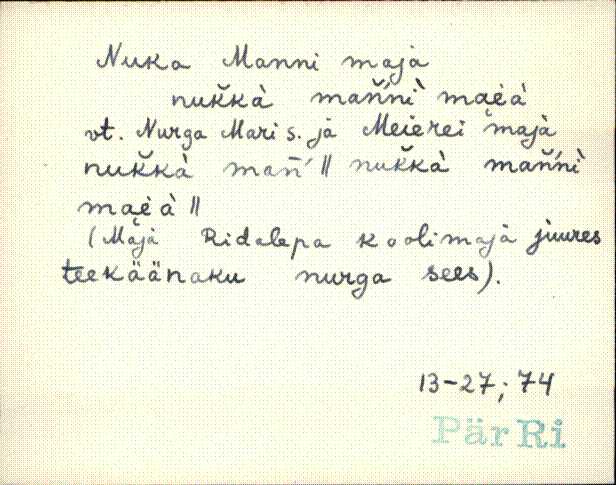 Nuka Manni maja
nuk̆kà mañ̆ńnì mae̯i̯à
vt. Nurga Mari s. ja Meierei maja
nuk̆kà mañ̄́ ‖ nuk̆kà mañ̆ńnì
mae̯i̯à ‖
(Maja Ridalepa koolimaja juures
teekäänaku nurga sees).
13-27; 74
PärRi